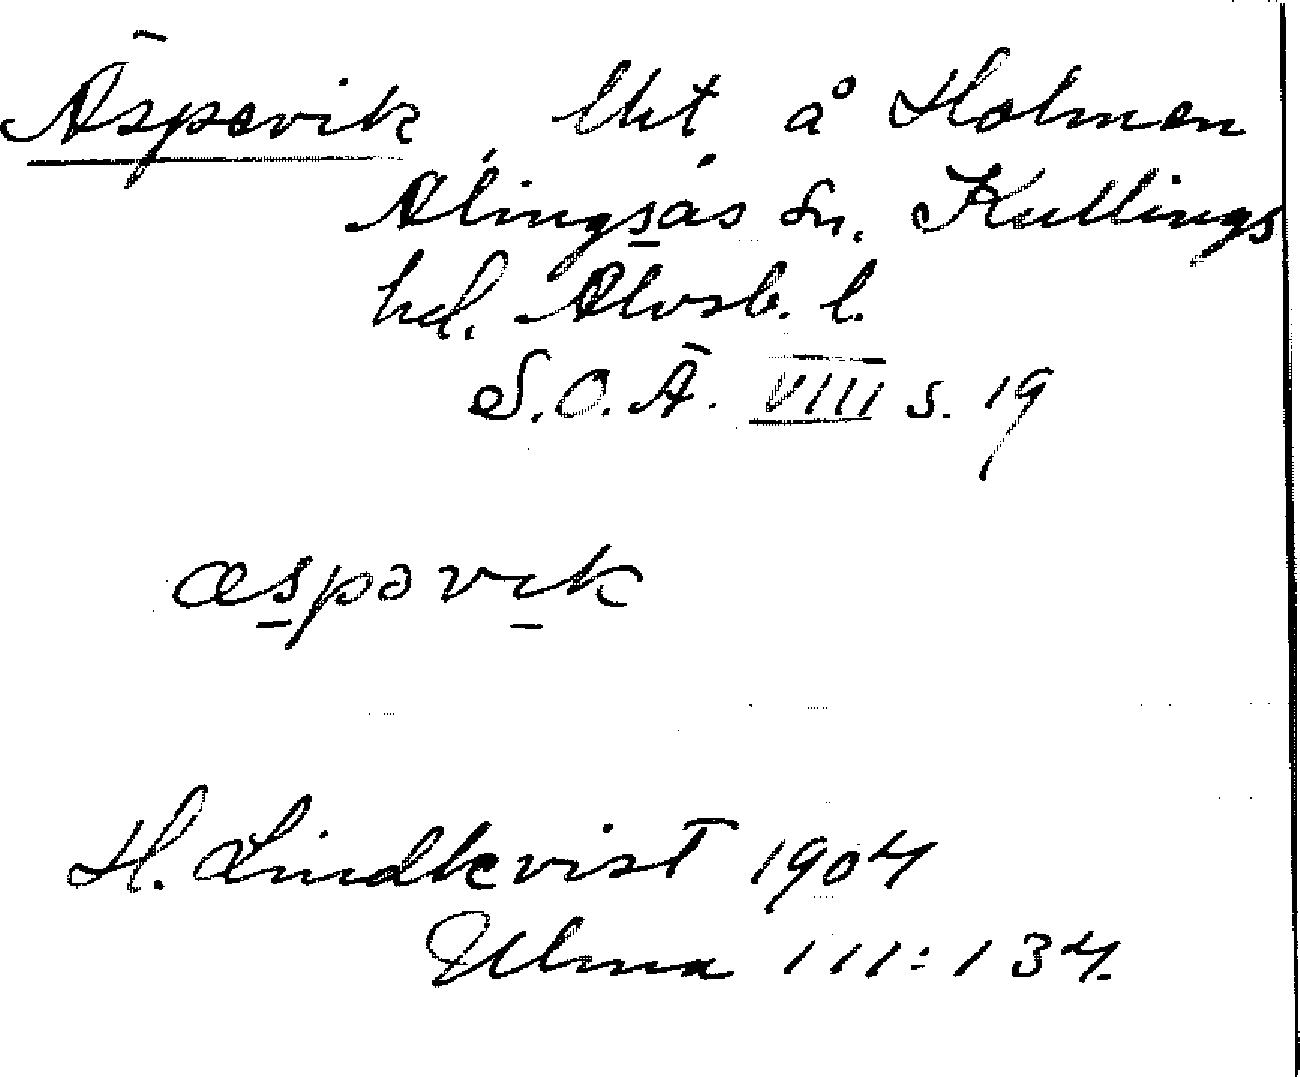 Äspevik, lht å Holmen
Alingsås sn. Kullings
hd. Älvsb. l.
S.O.Ä. VIII s. 19
æspəvik
H. Lindkvist 1904
Ulma 111:134.